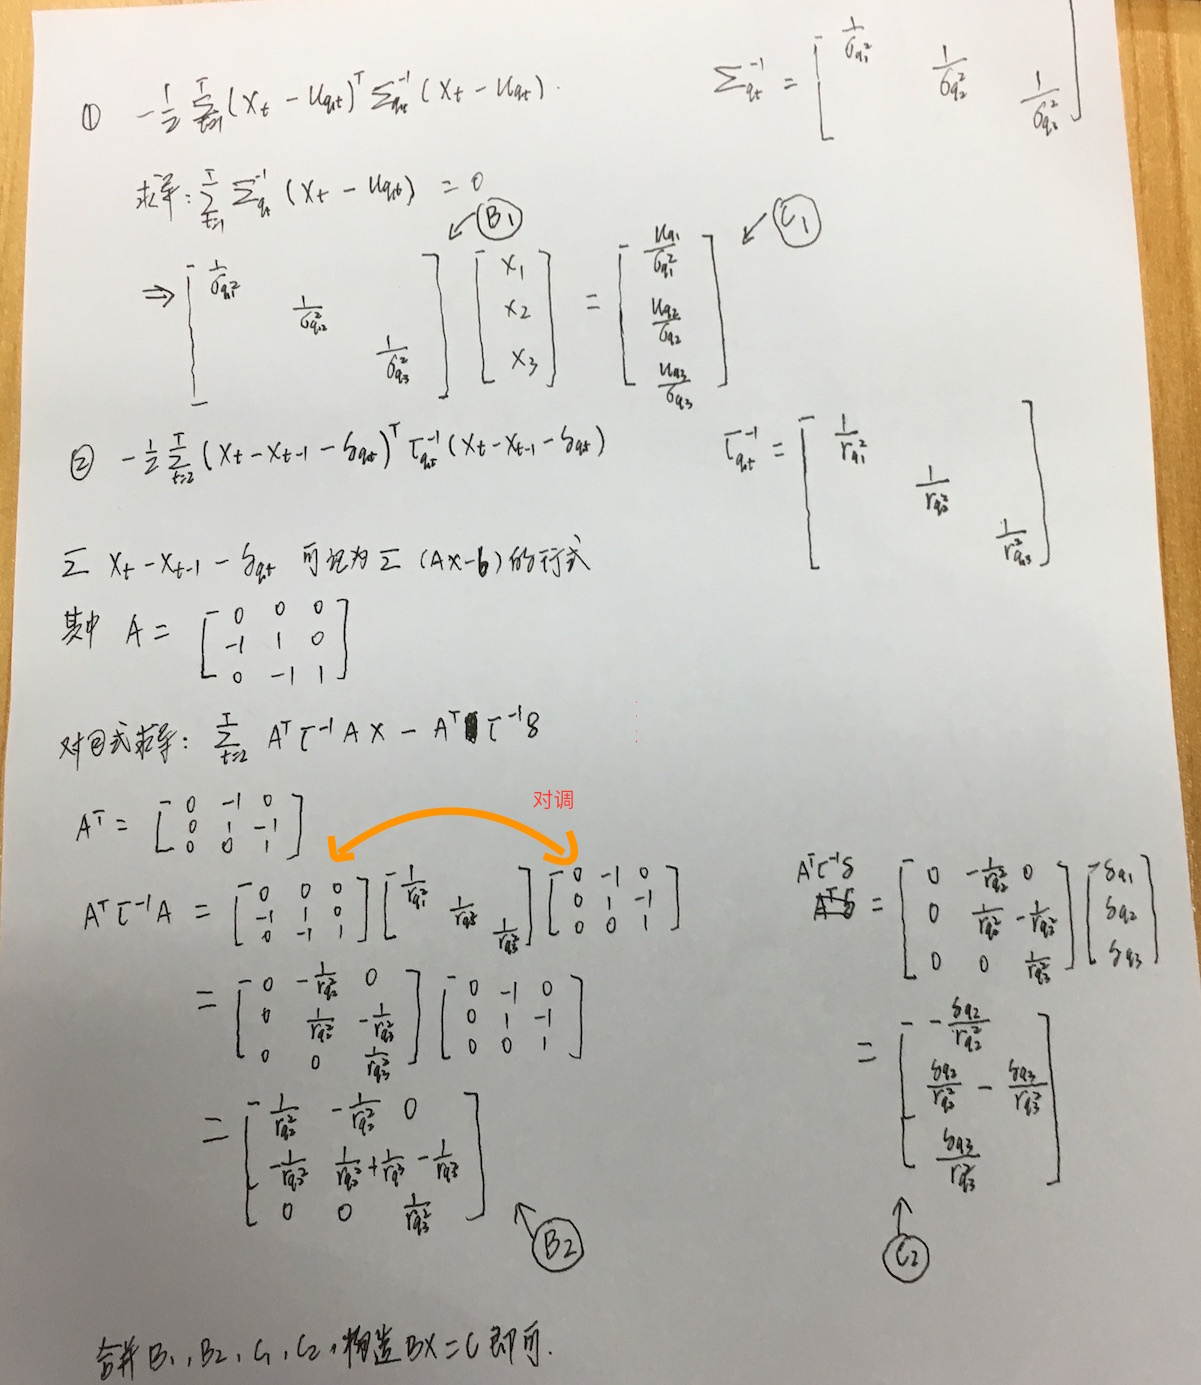 ① -1/2 Σ_{t=1}^{T} (X_t - u_{qt})^T Σ_{qt}^{-1} (X_t - u_{qt}).
Σ_{qt}^{-1} = [ 1/σ_{q1}^2  1/σ_{q2}^2  1/σ_{q3}^2 ]
求导: Σ_{t=1}^{T} Σ_{qt}^{-1} (X_t - u_{qt}) = 0
B1
C1
⇒ [ 1/σ_{q1}^2  1/σ_{q2}^2  1/σ_{q3}^2 ] [ X1  X2  X3 ] = [ u_{q1}/σ_{q1}^2  u_{q2}/σ_{q2}  u_{q3}/σ_{q3} ]
② -1/2 Σ_{t=2}^{T} (X_t - X_{t-1} - δ_{qt})^T τ_{qt}^{-1} (X_t - X_{t-1} - δ_{qt})
τ_{qt}^{-1} = [ 1/r_{q1}^2  1/r_{q2}^2  1/r_{q3}^2 ]
Σ X_t - X_{t-1} - δ_{qt} 可记为 Σ (AX-b) 的行式
其中 A =
[ 0 0 0
-1 1 0
0 -1 1 ]
对②式求导: Σ_{t=2}^{T} A^T τ^{-1} A X - A^T τ^{-1} δ
A^T =
[ 0 -1 0
0 1 -1
0 0 1 ]
对调
A^T τ^{-1} A = [ 0 0 0; -1 1 0; 0 -1 1 ] [ 1/r_{q1}^2  1/r_{q2}^2  1/r_{q3}^2 ] [ 0 -1 0; 0 1 -1; 0 0 1 ]
= [ 0 -1/r_{q2}^2 0; 0 1/r_{q2}^2 -1/r_{q3}^2; 0 0 1/r_{q3}^2 ] [ 0 -1 0; 0 1 -1; 0 0 1 ]
= [ 1/r_{q2}^2 -1/r_{q2}^2 0; -1/r_{q2}^2 1/r_{q2}^2+1/r_{q3}^2 -1/r_{q3}^2; 0 0 1/r_{q3}^2 ]
B2
A^T τ^{-1} δ
= [ 0 -1/r_{q2}^2 0; 0 1/r_{q2}^2 -1/r_{q3}^2; 0 0 1/r_{q3}^2 ] [ δ_{q1}  δ_{q2}  δ_{q3} ]
= [ -δ_{q2}/r_{q2}^2; δ_{q2}/r_{q2}^2 - δ_{q3}/r_{q3}^2; δ_{q3}/r_{q3}^2 ]
C2
合并 B1, B2, C1, C2, 构造 BX=C 即可.